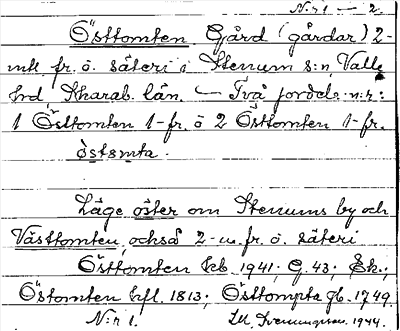 N:r 1 — 2.
Östtomten Gård (gårdar) 2-
mtl fr. o. säteri i Stenum s:n, Valle
hd, Skarab. län. — Två jordeb. n:r:
1 Östtomten 1-fr. o 2 Östtomten 1-fr.
östomta.
Läge öster om Stenums by och
Västtomten, också 2-m. fr. o. säteri
Östtomten Ekb. 1941; G. 43; Sk.;
Östomten hfl. 1813; Östtompta gb. 1749.
N:r 1. 1944.